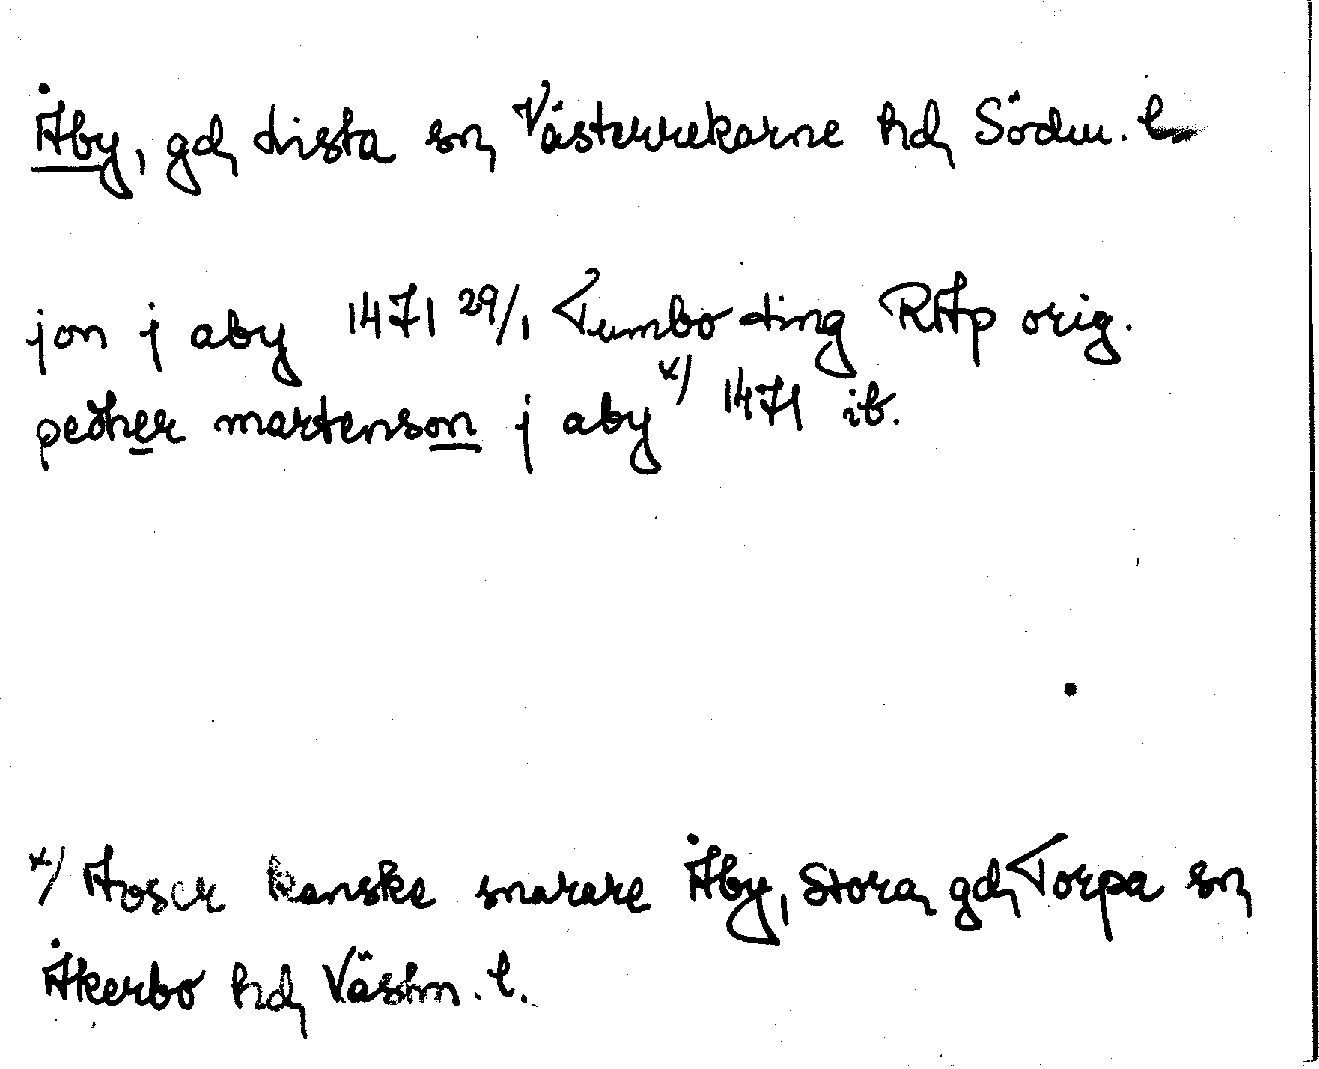 Åby, gd, Lista sn, Västerrekarne hd, Södm. l
jon j aby 1471 29/1 Tumbo ting RAp orig.
pedher martenson j aby x) 1471 ib.
x) Avser kanske snarare Åby, Stora, gd, Torpa sn,
Åkerbo hd, Västm. l.